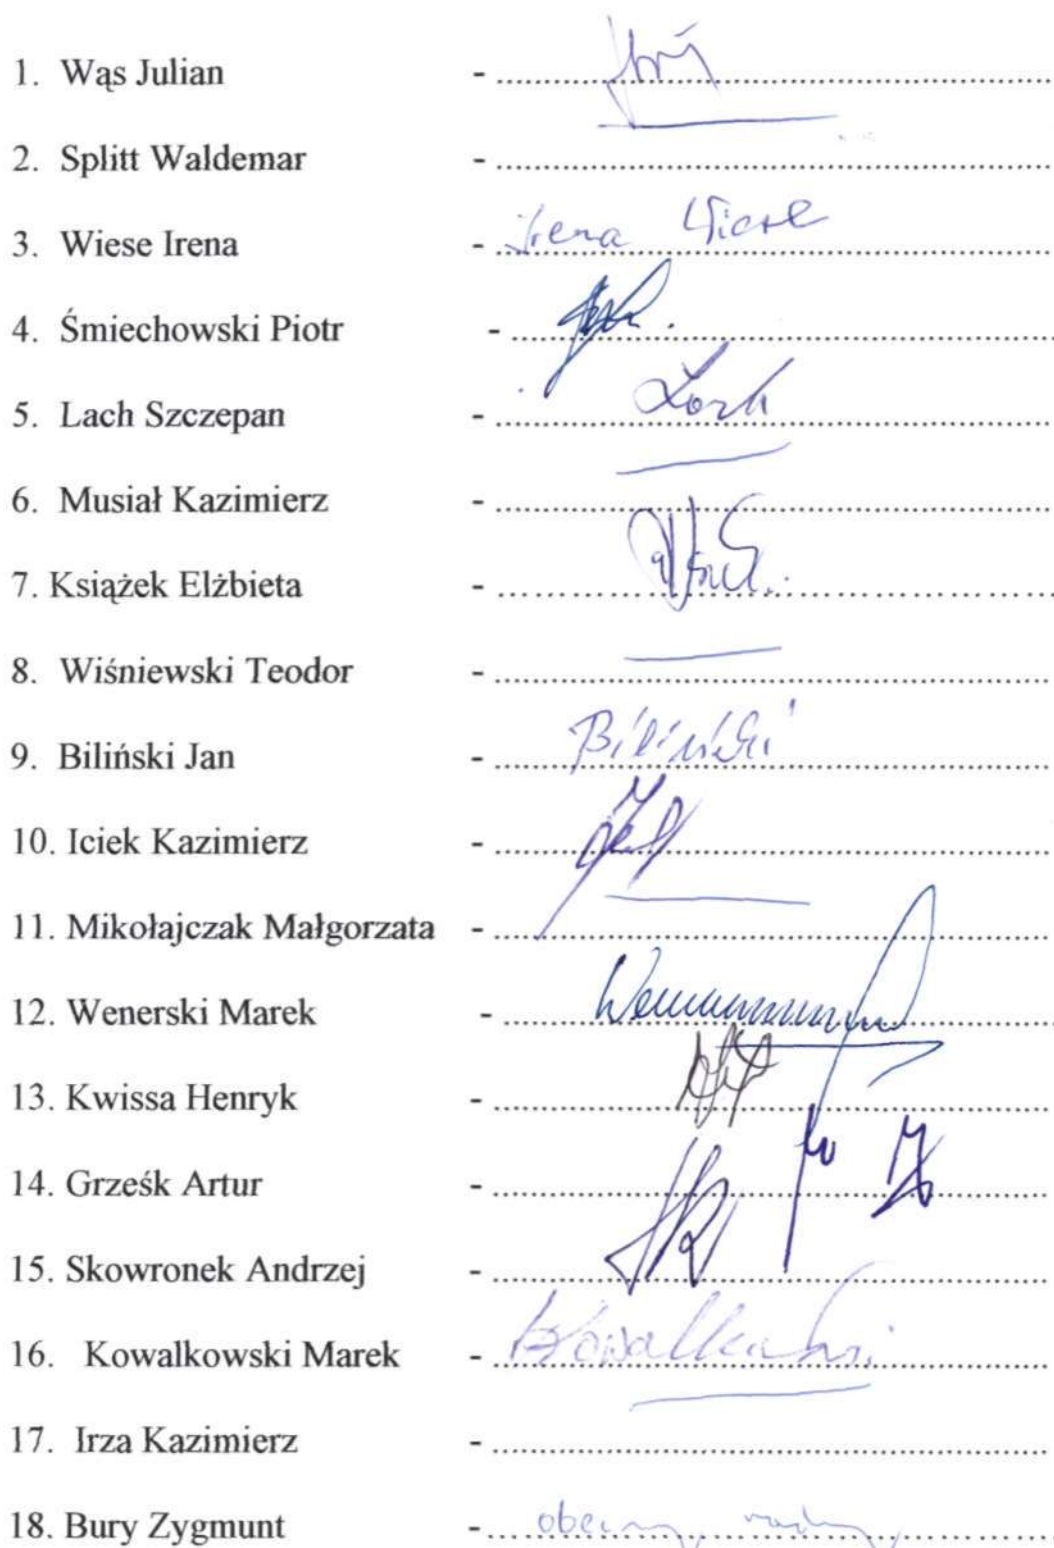 1. Wąs Julian - ...............
2. Splitt Waldemar - ...............
3. Wiese Irena - Irena Wiese
4. Śmiechowski Piotr - ...............
5. Lach Szczepan - Lach
6. Musiał Kazimierz - ...............
7. Książek Elżbieta - ...............
8. Wiśniewski Teodor - ...............
9. Biliński Jan - Biliński
10. Iciek Kazimierz - ...............
11. Mikołajczak Małgorzata - ...............
12. Wenerski Marek - ...............
13. Kwissa Henryk - ...............
14. Grześk Artur - ...............
15. Skowronek Andrzej - ...............
16. Kowalkowski Marek - Kowalkowski
17. Irza Kazimierz - ...............
18. Bury Zygmunt - obecny radny